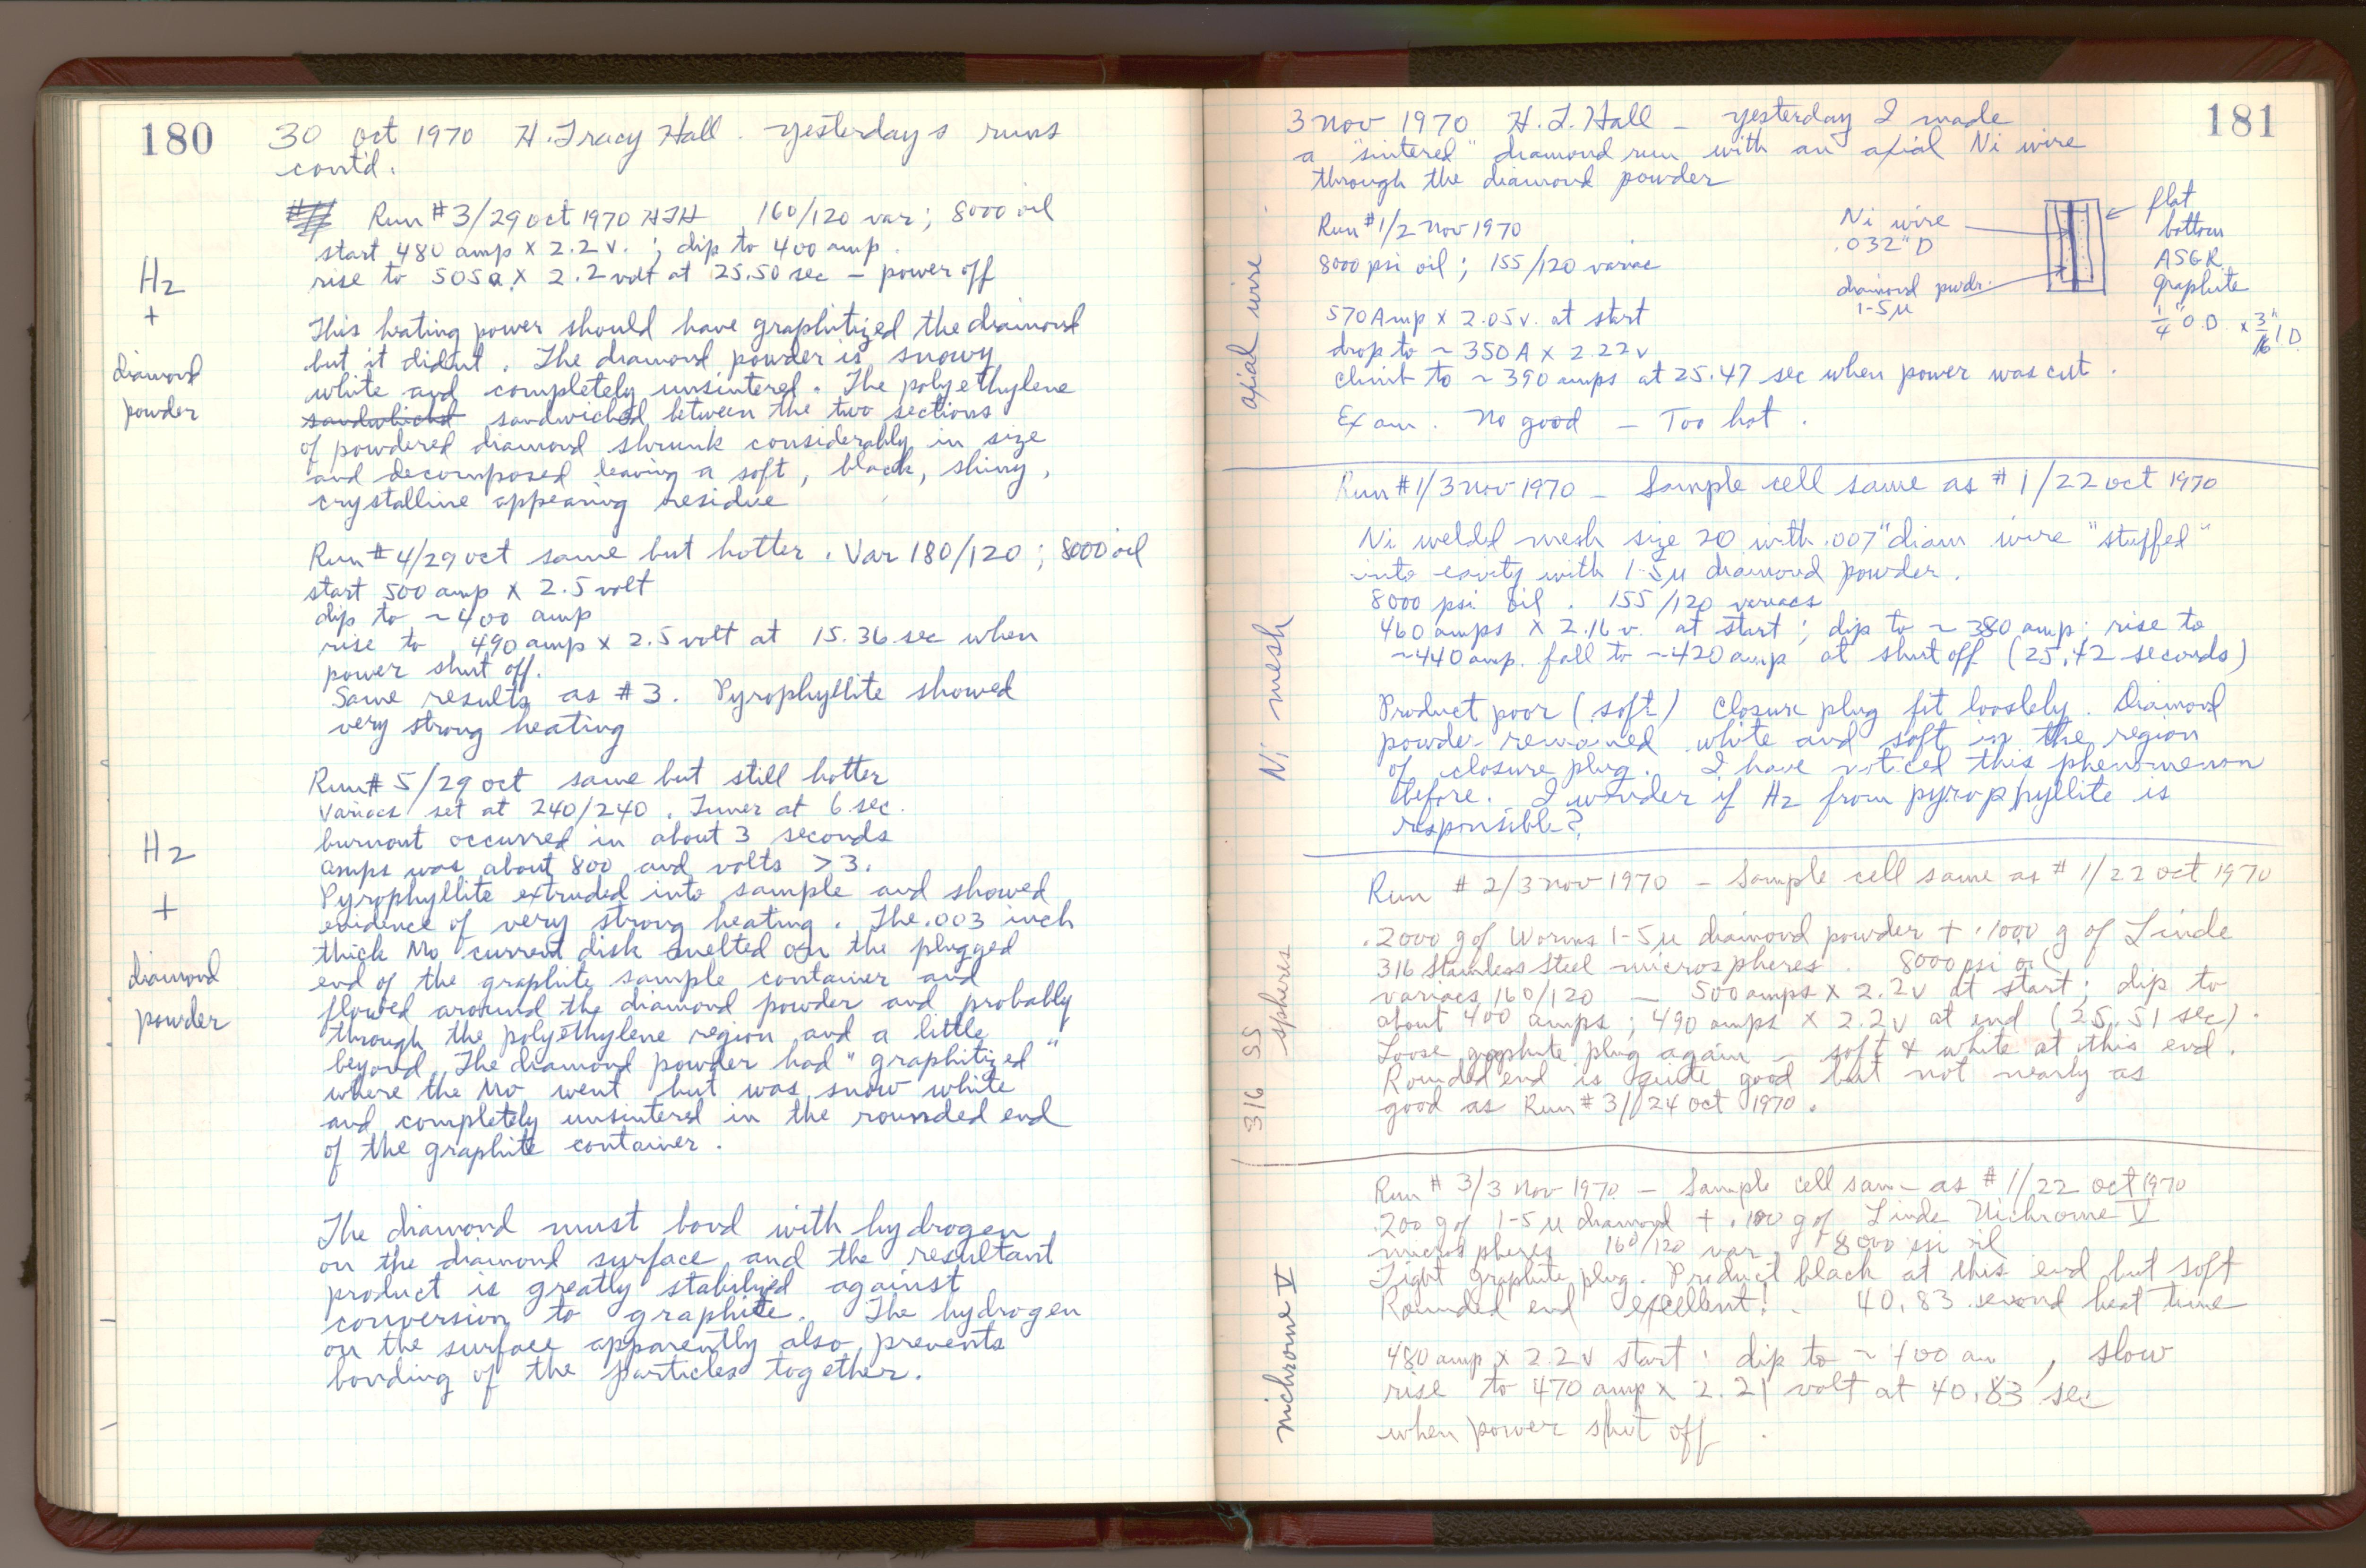 180
30 Oct 1970 H. Tracy Hall. Yesterdays runs
cont'd.
Run #3/29 Oct 1970 HTH 160/120 var; 8000 oil
start 480 amp X 2.2 v. ; dip to 400 amp.
rise to 505a. X 2.2 volt at 25.50 sec – power off
H2
+
diamond
powder
This heating power should have graphitized the diamond
but it didnt. The diamond powder is snowy
white and completely unsintered. The polyethylene
sandwiched sandwiched between the two sections
of powdered diamond shrunk considerably in size
and decomposed leaving a soft, black, shiny,
crystalline appearing residue
Run #4/29 oct same but hotter. Var 180/120 ; 8000 oil
start 500 amp X 2.5 volt
dip to ~400 amp
rise to 490 amp x 2.5 volt at 15.36 sec when
power shut off.
Same results as #3. Pyrophyllite showed
very strong heating
Run# 5/29 oct same but still hotter
Variacs set at 240/240. Timer at 6 sec.
burnout occurred in about 3 seconds
amps was about 800 and volts >3.
H2
+
diamond
powder
Pyrophyllite extruded into sample and showed
evidence of very strong heating. The .003 inch
thick Mo current disk melted on the plugged
end of the graphite sample container and
flowed around the diamond powder and probably
through the polyethylene region and a little
beyond. The diamond powder had "graphitized"
where the Mo went but was snow white
and completely unsintered in the rounded end
of the graphite container.
The diamond must bond with hydrogen
on the diamond surface and the resultant
product is greatly stabilized against
conversion to graphite. The hydrogen
on the surface apparently also prevents
bonding of the particles together.
181
3 Nov 1970 H.T. Hall – yesterday I made
a "sintered" diamond run with an axial Ni wire
through the diamond powder
axial wire
Run #1/2 Nov 1970
8000 psi oil; 155/120 variac
Ni wire
.032" D
diamond pwdr.
1-5µ
flat
bottom
ASGR
graphite
1/4" O.D. x 3/16" ID
570 Amp X 2.05v. at start
drop to ~350 A X 2.22v
climb to ~390 amps at 25.47 sec when power was cut.
Exam. No good – Too hot.
Ni mesh
Run #1/3 Nov 1970 – Sample cell same as #1/22 oct 1970
Ni welded mesh size 20 with .007" diam wire "stuffed"
into cavity with 1-5µ diamond powder.
8000 psi oil. 155/120 variacs
460 amps X 2.16 v. at start; dip to ~380 amp; rise to
~440 amp. fall to ~420 amp at shut off (25.42 seconds)
Product poor (soft) Closure plug fit loosely. Diamond
powder remained white and soft in the region
of closure plug. I have noticed this phenomenon
before. I wonder if H2 from pyrophyllite is
responsible?
316 SS
spheres
Run #2/3 Nov 1970 – Sample cell same as #1/22 Oct 1970
.2000 g of Worms 1-5µ diamond powder + .1000 g of Linde
316 Stainless Steel microspheres. 8000 psi oil
variacs 160/120 – 500 amps X 2.2v at start; dip to
about 400 amps; 490 amps X 2.2v at end (25.51 sec).
Loose graphite plug again – soft & white at this end.
Rounded end is quite good but not nearly as
good as Run #3/24 Oct 1970.
nichrome V
Run #3/3 Nov 1970 – Sample cell same as #1/22 Oct 1970
.200 g of 1-5µ diamond + .100 g of Linde Nichrome V
microspheres 160/120 var, 8000 psi oil
Tight graphite plug. Product black at this end but soft
Rounded end excellent! 40.83 second heat time
480 amp x 2.2v start; dip to ~400 am , slow
rise to 470 amp x 2.21 volt at 40.83 sec
when power shut off.